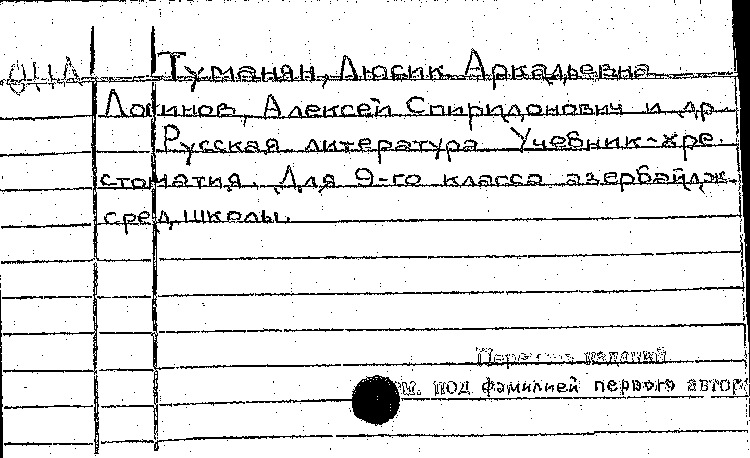 Туманян, Люсик Аркадьевна
Логинов, Алексей Спиридонович и др.
Русская литература. Учебник-хре-
стоматия. Для 9-го класса азербайдж.
сред. школы.
Перечень изданий
см. под фамилией первого автора